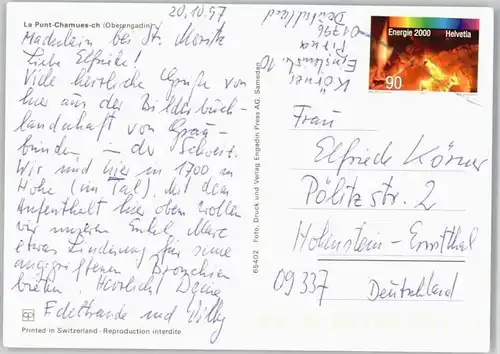 La Punt-Chamues-ch (Oberengadin)
20.10.97
Madulein bei St. Moritz
Liebe Elfriede!
Viele herzliche Grüße von
hier aus der Bilderbuch-
landschaft von Grau-
bünden in der Schweiz.
Wir sind hier in 1700 m
Höhe (im Tal). Mit dem
Aufenthalt hier oben wollen
wir unserem Enkel Marc
etwas Linderung für seine
angegriffenen Bronchien
bieten. Herzlichst Deine
Edeltraude und Willy
Printed in Switzerland - Reproduction interdite
65402 Foto, Druck und Verlag Engadin Press AG, Samedan
Körner
10
Pirna
01796
Deutschland
Energie 2000 Helvetia
90
Frau
Elfriede Körner
Pölitzstr. 2
Hohnstein-Ernstthal
09337 Deutschland